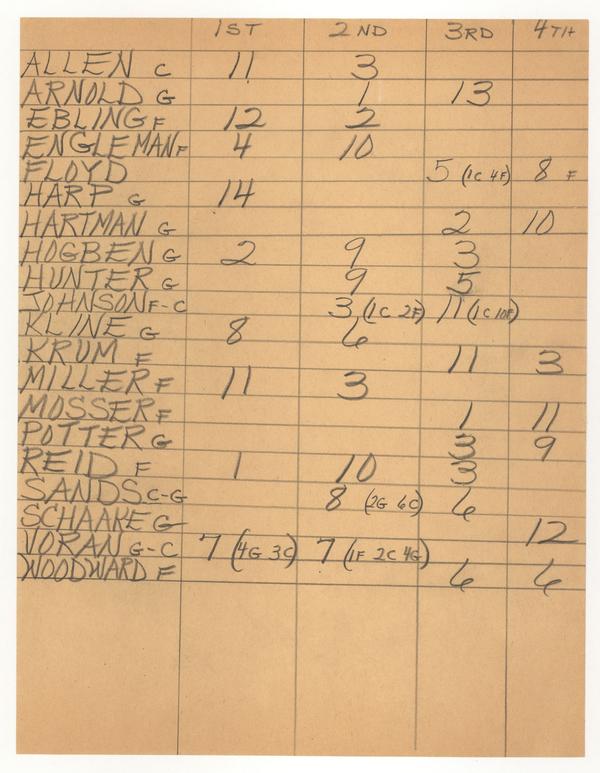 1ST 2ND 3RD 4TH
ALLEN C 11 3
ARNOLD G 1 13
EBLING F 12 2
ENGLEMAN F 4 10
FLOYD 5 (1C 4F) 8 F
HARP G 14
HARTMAN G 2 10
HOGBEN G 2 9 3
HUNTER G 9 5
JOHNSON F-C 3 (1C 2F) 11 (1C 10F)
KLINE G 8 6
KRUM F 11 3
MILLER F 11 3
MOSSER F 1 11
POTTER G 3 9
REID F 1 10 3
SANDS C-G 8 (2G 6C) 6
SCHAAKE G 12
VORAN G-C 7 (4G 3C) 7 (1F 2C 4G)
WOODWARD F 6 6